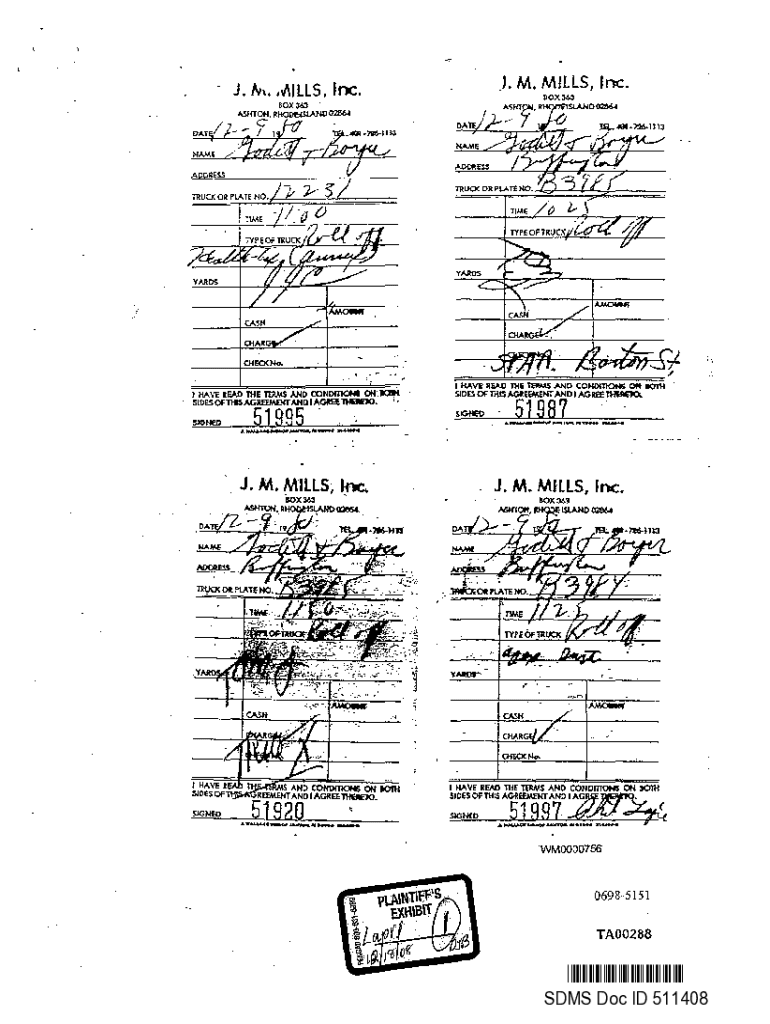 J. M. MILLS, Inc.
BOX 363
ASHTON, RHODE ISLAND 02864
DATE 12-9 1980 TEL. 401-726-1113
NAME Godett & Boyer
ADDRESS
TRUCK OR PLATE NO. 12231
TIME 11:00
TYPE OF TRUCK Roll off
YARDS
AMOUNT
CASH
CHARGE
CHECK No.
I HAVE READ THE TERMS AND CONDITIONS ON BOTH
SIDES OF THIS AGREEMENT AND I AGREE THERETO.
51995
SIGNED
J. M. MILLS, Inc.
BOX 363
ASHTON, RHODE ISLAND 02864
DATE 12-9 1980 TEL. 401-726-1113
NAME Godett & Boyer
ADDRESS Buffington
TRUCK OR PLATE NO. B3985
TIME 1025
TYPE OF TRUCK Roll off
YARDS
AMOUNT
CASH
CHARGE
Barton St.
I HAVE READ THE TERMS AND CONDITIONS ON BOTH
SIDES OF THIS AGREEMENT AND I AGREE THERETO.
51987
SIGNED
J. M. MILLS, Inc.
BOX 363
ASHTON, RHODE ISLAND 02864
DATE 12-9 1980 TEL. 401-726-1113
NAME Godett & Boyer
ADDRESS Buffington
TRUCK OR PLATE NO. B3985
TIME 1150
TYPE OF TRUCK Roll off
YARDS
AMOUNT
CASH
CHARGE
I HAVE READ THE TERMS AND CONDITIONS ON BOTH
SIDES OF THIS AGREEMENT AND I AGREE THERETO.
51920
SIGNED
J. M. MILLS, Inc.
BOX 363
ASHTON, RHODE ISLAND 02864
DATE 12-9 1980 TEL. 401-726-1113
NAME Godett & Boyer
ADDRESS Buffington
TRUCK OR PLATE NO. B3984
TIME 1125
TYPE OF TRUCK Roll off
Dust
YARDS
AMOUNT
CASH
CHARGE
CHECK No.
I HAVE READ THE TERMS AND CONDITIONS ON BOTH
SIDES OF THIS AGREEMENT AND I AGREE THERETO.
51997
SIGNED
WM0000756
PLAINTIFF'S
EXHIBIT
1
12/18/08
0698-5151
TA00288
SDMS Doc ID 511408